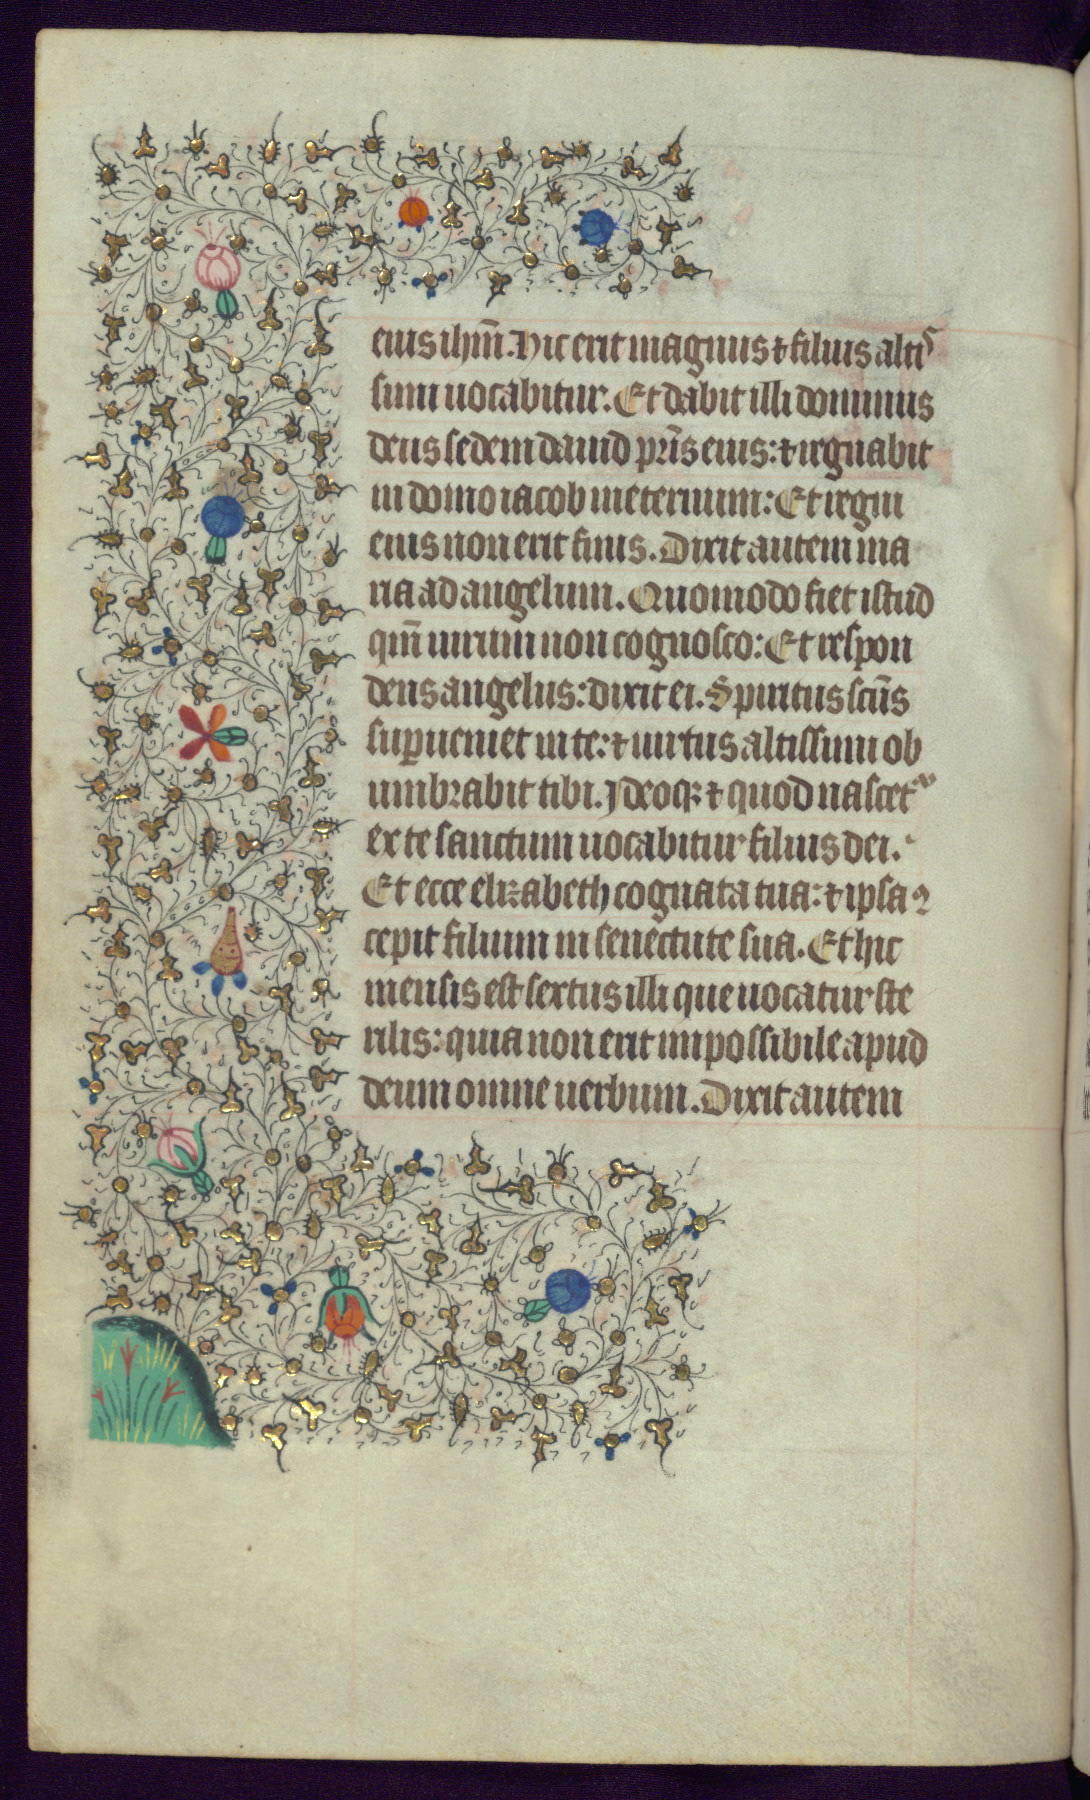 eius ihm̅. Hic erit magnus ⁊ filius altis
simi uocabitur. Et dabit illi dominus
deus sedem dauid pr̅is eius: ⁊ regnabit
in domo iacob in eternum: Et regni
eius non erit finis. Dixit autem ma
ria ad angelum. Quomodo fiet istud
qm̅ uirum non cognosco: Et respon
dens angelus: dixit ei. Spiritus sc̅us
sup̅ueniet in te: ⁊ uirtus altissimi ob
umbrabit tibi. Ideoqꝫ ⁊ quod nascet᷑
ex te sanctum uocabitur filius dei.
Et ecce elizabeth cognata tua: ⁊ ipsa ꝯ
cepit filium in senectute sua. Et hic
mensis est sextus illi que uocatur ste
rilis: quia non erit impossibile apud
deum omne uerbum. Dixit autem